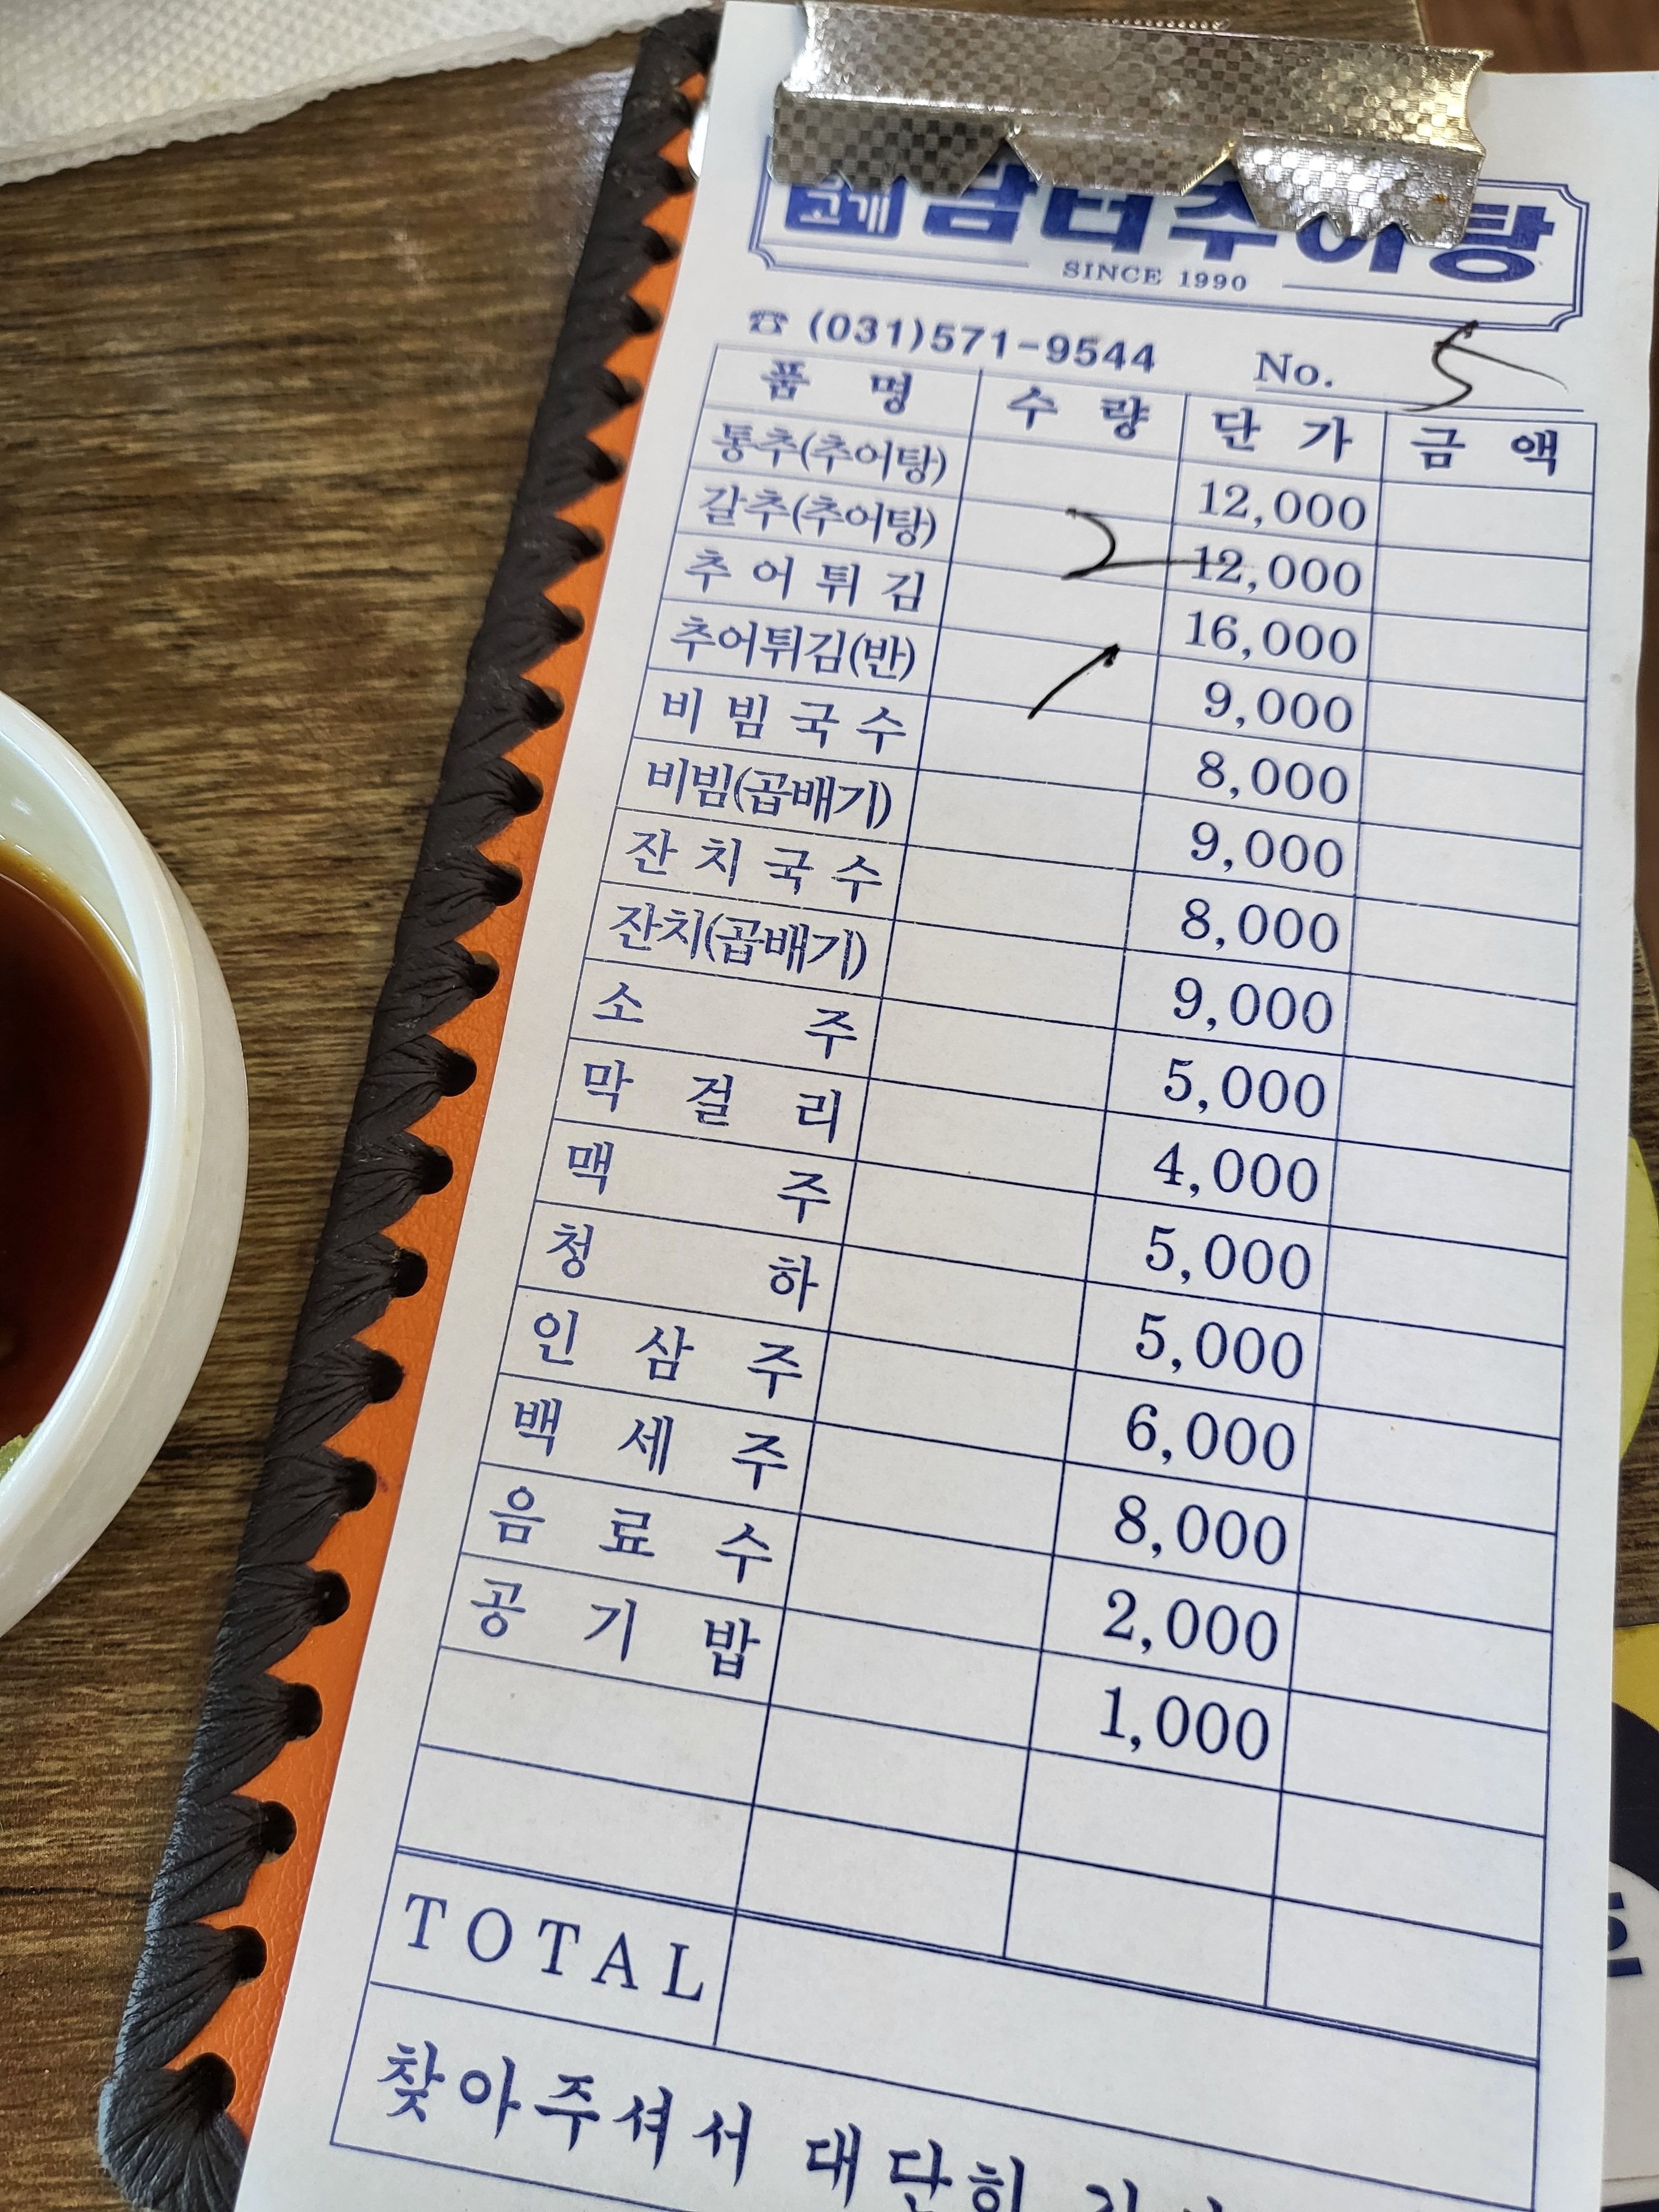 고개 남터추어탕
SINCE 1990
☎ (031)571-9544 No. 5
품 명 수 량 단 가 금 액
통추(추어탕) 12,000
갈추(추어탕) 2 12,000
추 어 튀 김 16,000
추어튀김(반) 1 9,000
비 빔 국 수 8,000
비빔(곱배기) 9,000
잔 치 국 수 8,000
잔치(곱배기) 9,000
소 주 5,000
막 걸 리 4,000
맥 주 5,000
청 하 5,000
인 삼 주 6,000
백 세 주 8,000
음 료 수 2,000
공 기 밥 1,000
TOTAL
찾아주셔서 대단히